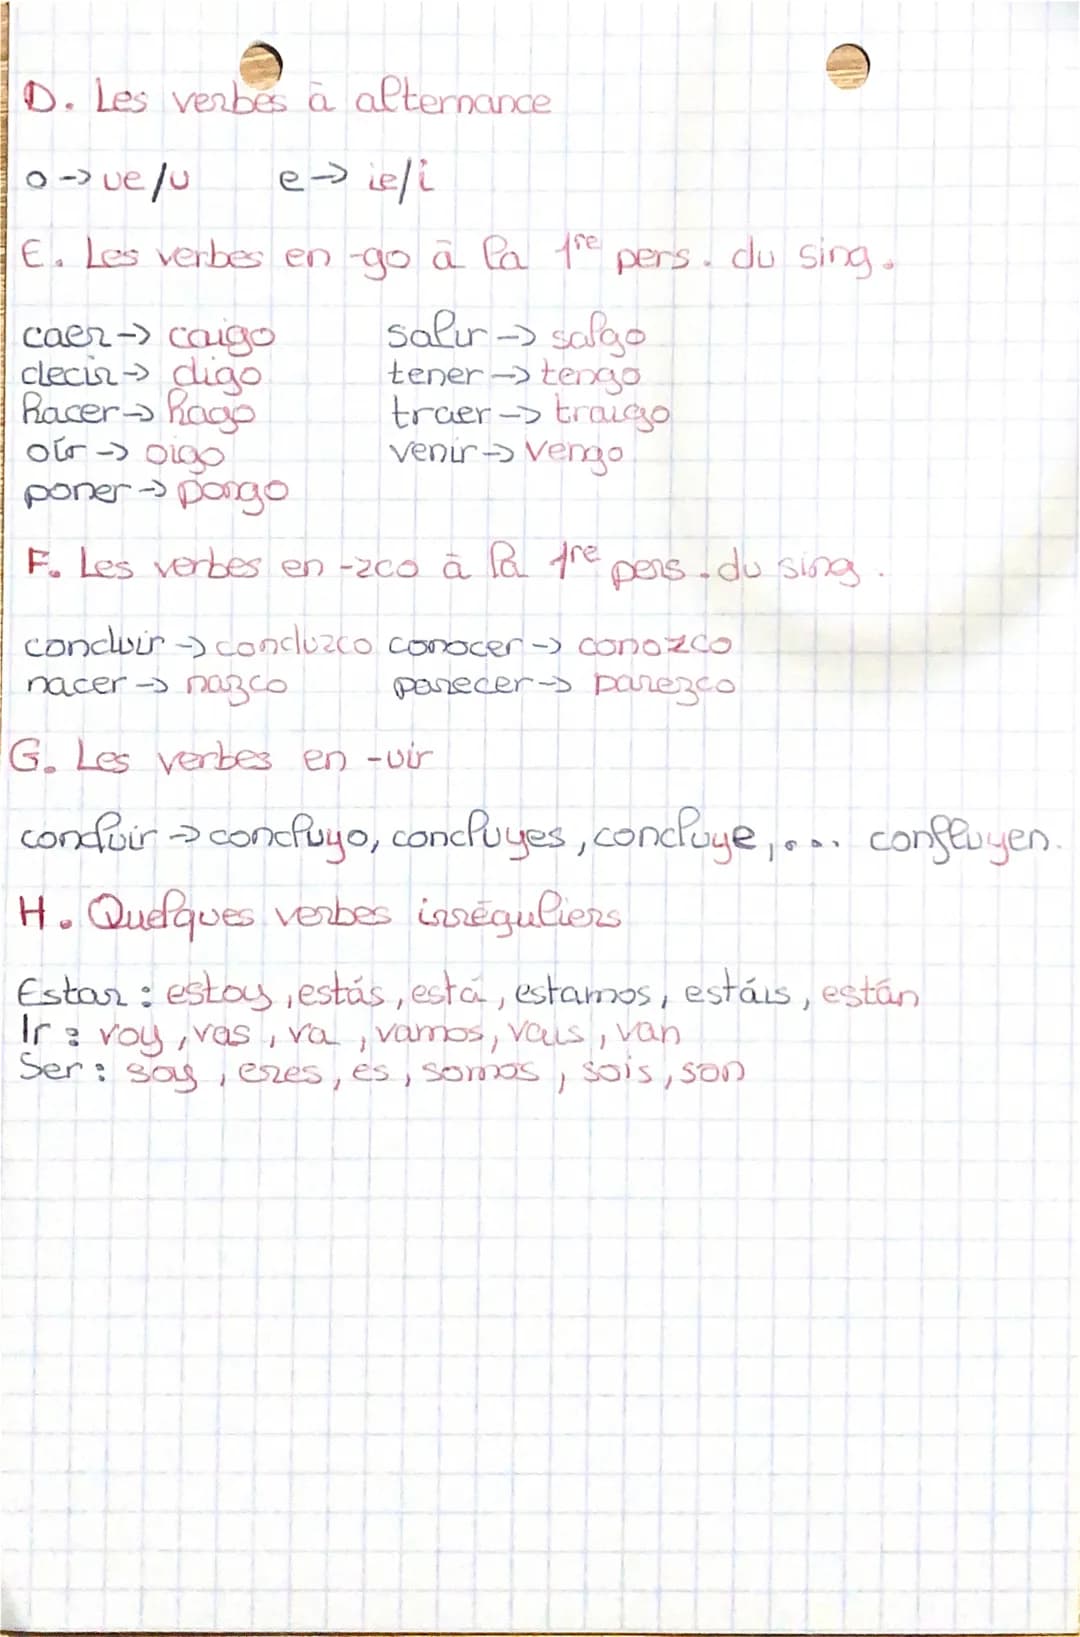 D. Les verbes à alternance
o → ue/u e → ie/i
E. Les verbes en -go à la 1re pers. du sing.
caer → caigo salir → salgo
decir → digo tener → tengo
hacer → hago traer → traigo
oír → oigo venir → vengo
poner → pongo
F. Les verbes en -zco à la 1re pers. du sing.
concluir → concluzco conocer → conozco
nacer → nazco parecer → parezco
G. Les verbes en -uir
concluir → concluyo, concluyes, concluye, ... concluyen.
H. Quelques verbes irréguliers
Estar : estoy, estás, está, estamos, estáis, están
Ir : voy, vas, va, vamos, vais, van
Ser : soy, eres, es, somos, sois, son